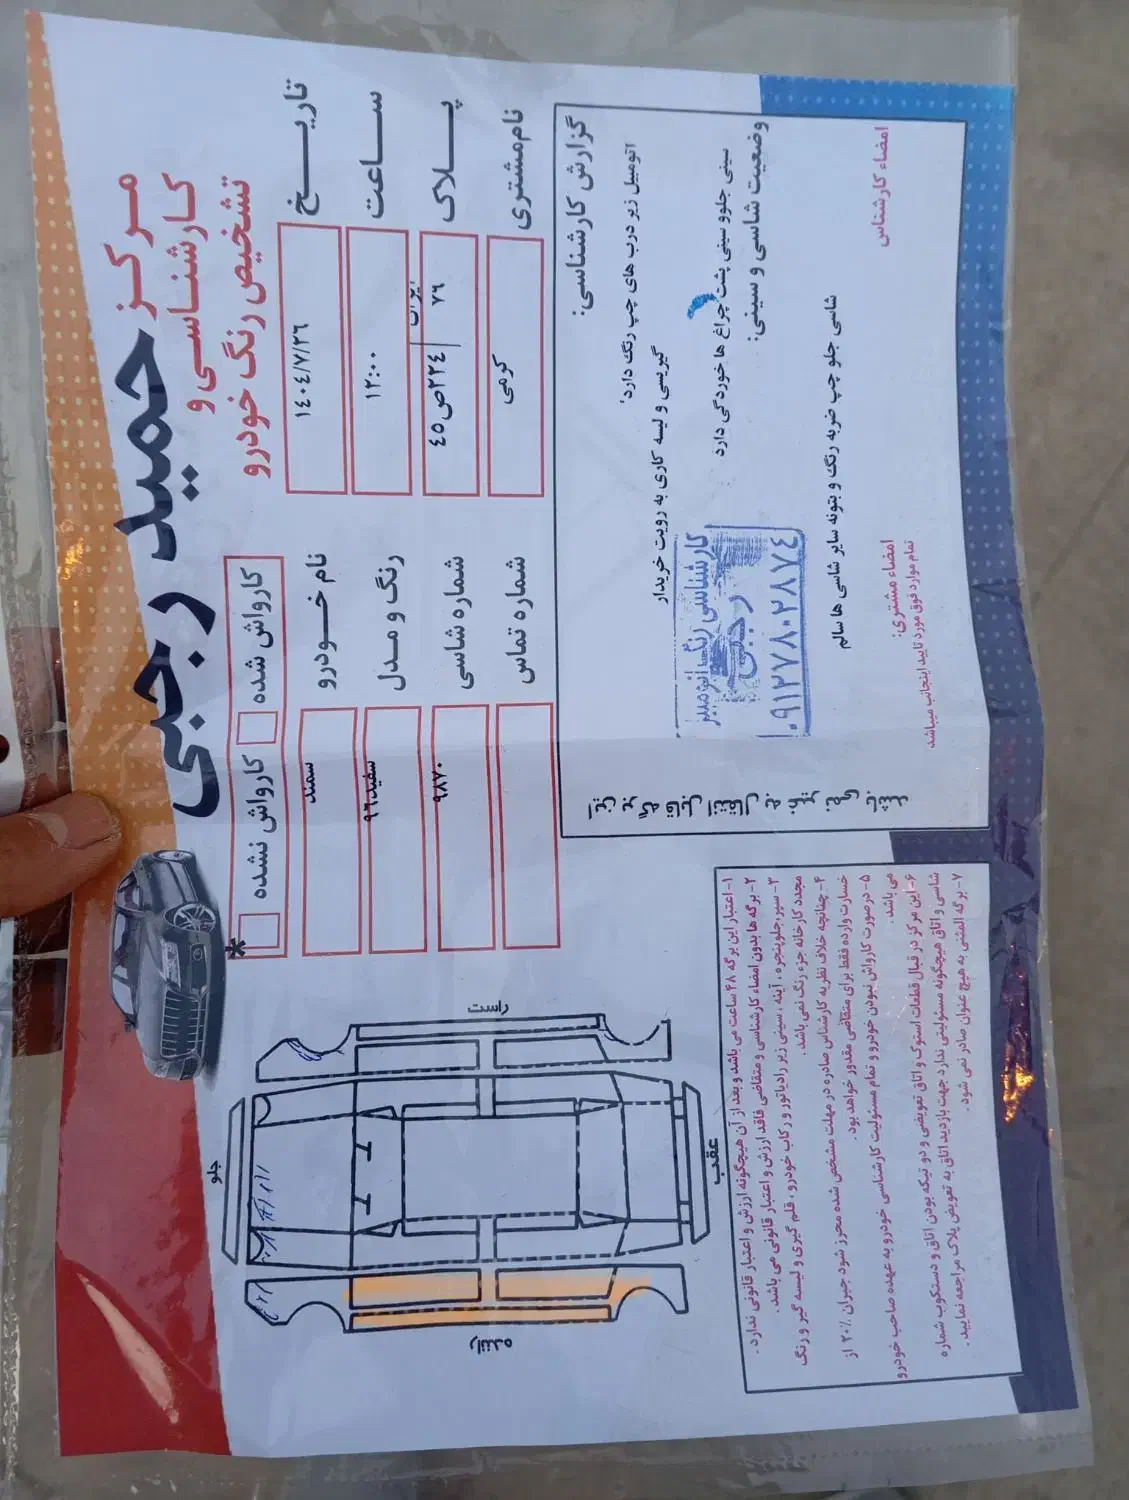 مرکز
کارشناسی و
تشخیص رنگ خودرو
حمید رجبی
کارواش شده
کارواش نشده *
تاریخ ۱۴۰۴/۷/۲۶
ساعت ۱۲:۰۰
پلاک ۲۲٤ص٤٥ ایران ۷۶
نام مشتری کرمی
نام خودرو سمند
رنگ و مدل سفید۹۶
شماره شاسی ۹۸۷۰
شماره تماس
گزارش کارشناسی:
اتومبیل زیر درب های چپ رنگ دارد.
گیریسی و لیسه کاری به رویت خریدار
وضعیت شاسی و سینی:
سینی جلوو سینی پشت چراغ ها خوردگی دارد
شاسی جلو چپ ضربه رنگ و بتونه سایر شاسی ها سالم
کارشناسی رنگ اتومبیل
رجبی
۰۹۱۲۷۸۰۲۸۷٤
امضاء کارشناس
امضاء مشتری:
تمام موارد فوق مورد تایید اینجانب میباشد
جلو
عقب
راننده
۱- اعتبار این برگه ۴۸ ساعت می باشد و بعد از آن هیچگونه ارزش و اعتبار قانونی ندارد.
۲- برگه ها بدون امضاء کارشناسی و متقاضی فاقد ارزش و اعتبار قانونی می باشد.
۳- سپر، جلوپنجره، آینه، سینی زیر رادیاتور و رکاب خودرو، قلم گیری و لیسه گیر و رنگ
مجدد کارخانه جزء رنگ نمی باشد.
۴- چنانچه خلاف نظریه کارشناس صادره در مهلت مشخص شده محرز شود جبران ۲۰٪ از
خسارت وارده فقط برای متقاضی مقدور خواهد بود.
۵- درصورت کارواش نبودن خودرو و تمام مسئولیت کارشناسی خودرو به عهده صاحب خودرو
می باشد.
۶- این مرکز در قبال قطعات استوک و اتاق تعویضی و دو تیکه بودن اتاق و دستکوب شماره
شاسی و اتاق هیچگونه مسئولیتی ندارد جهت بازدید اتاق به تعویض پلاک مراجعه نمایید.
۷- برگه المثنی به هیچ عنوان صادر نمی شود.